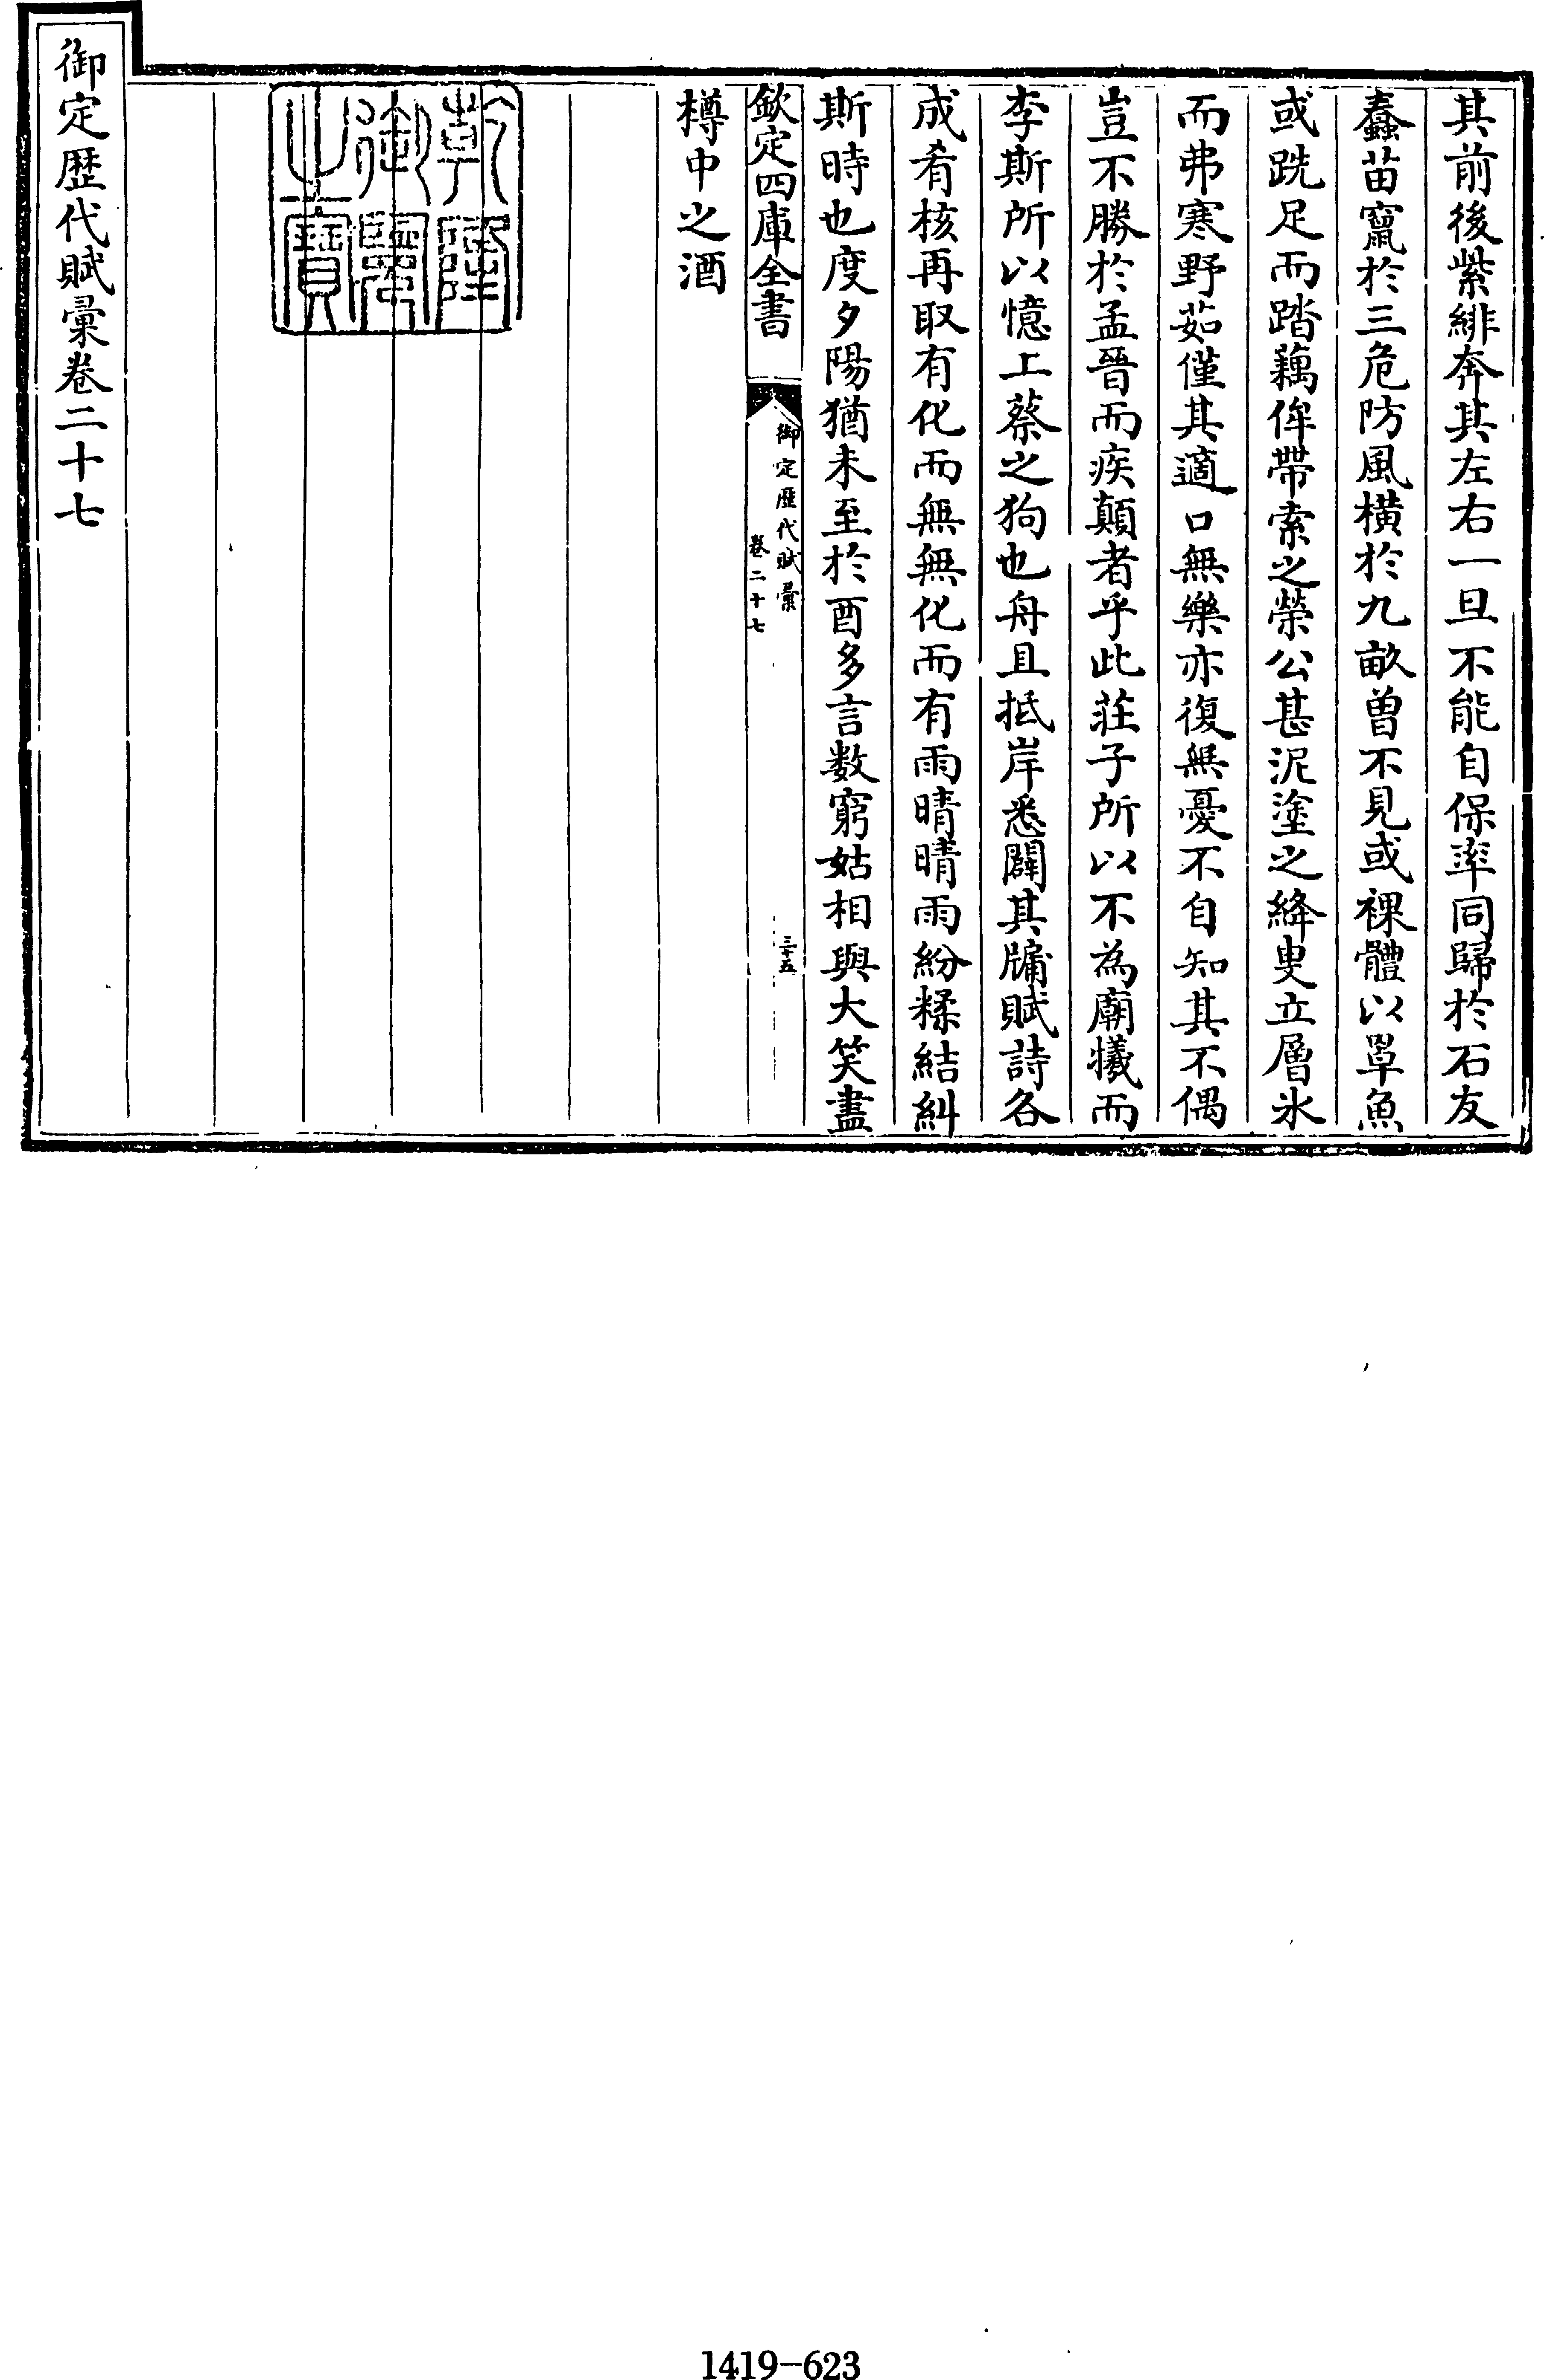 其前後紫緋奔其左右一旦不能自保率同歸於石友
蠢苗竄於三危防風橫於九畝曾不見或裸體以罩魚
或跣足而踏藕侔帶索之榮公甚泥塗之絳叟立層氷
而弗寒野茹僅其適口無樂亦復無憂不自知其不偶
豈不勝於孟晉而疾顛者乎此莊子所以不為廟犧而
李斯所以憶上蔡之狗也舟且抵岸悉闢其牖賦詩各
成肴核再取有化而無無化而有雨晴晴雨紛糅結糾
斯時也度夕陽猶未至於酉多言數窮姑相與大笑盡
欽定四庫全書
御定歷代賦彙
卷二十七
三十五
樽中之酒
乾隆
御覽
之寶
御定歴代賦彙卷二十七
1419-623